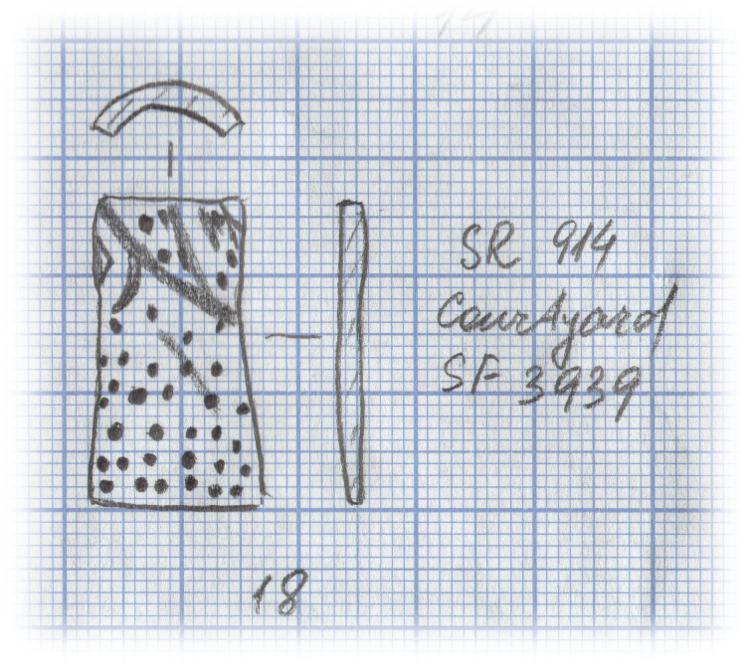 SR 914
Courtyard
SF 3939
18